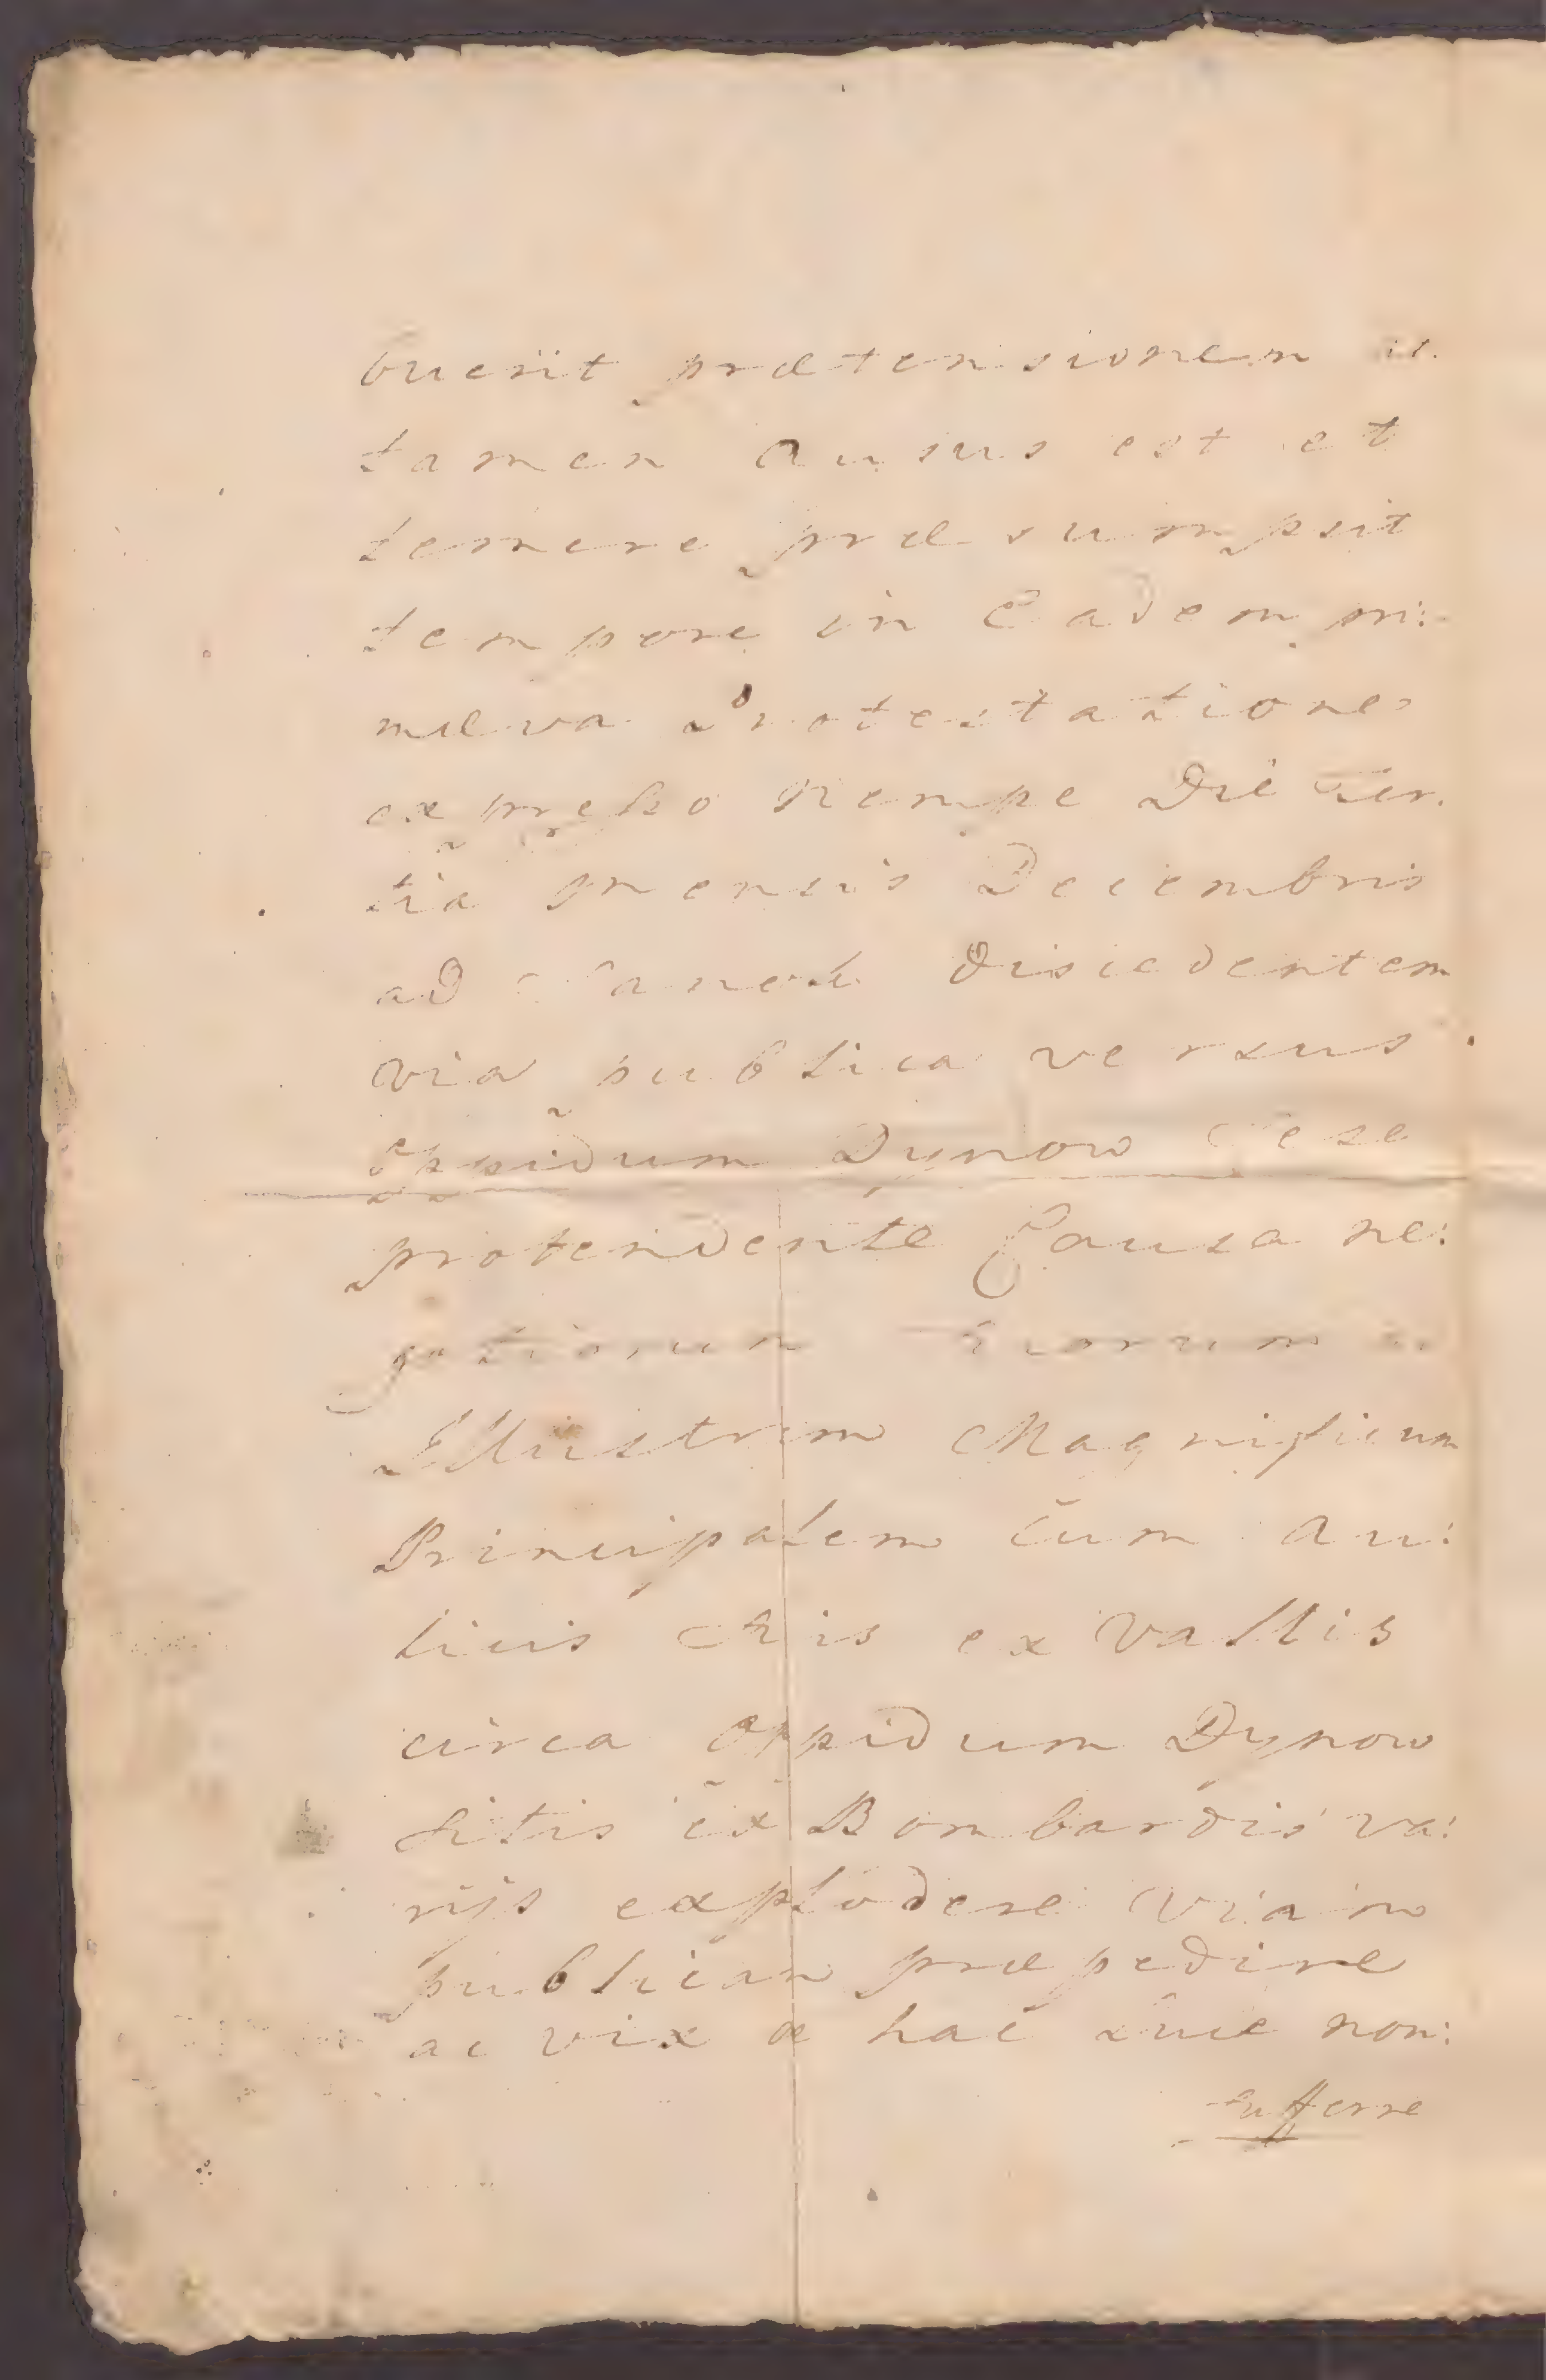 buerit prætensionem is.
tamen Ausus est et
temere præsumpsit
tempore in Eadem pri:
mæva Protestatione
expresso Nempe Die ter.
tiâ Mensis Decembris
ad Sanok discedentem
via publica versus
Oppidum Dynow Sese
protendente Causa ne:
gotiorum Suorum
Illustrem Magnificum
Principalem cum Au:
licis Suis ex Vallis
circa Oppidum Dynow
Sitis ex Bombardis va:
rijs explodere Viam
publicam præpedire
ac vix a hac luce non:
Aufferre